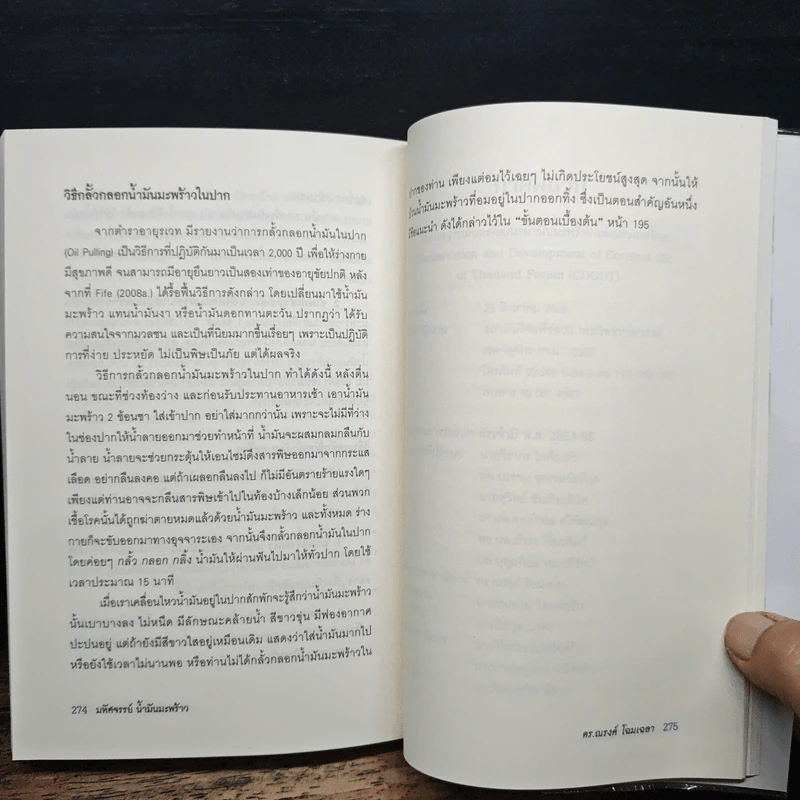 วิธีกลั้วกลอกน้ำมันมะพร้าวในปาก
จากตำราอายุรเวท มีรายงานว่าการกลั้วกลอกน้ำมันในปาก
(Oil Pulling) เป็นวิธีการที่ปฏิบัติกันมาเป็นเวลา 2,000 ปี เพื่อให้ร่างกาย
มีสุขภาพดี จนสามารถมีอายุยืนยาวเป็นสองเท่าของอายุขัยปกติ หลัง
จากที่ Fife (2008a.) ได้รื้อฟื้นวิธีการดังกล่าว โดยเปลี่ยนมาใช้น้ำมัน
มะพร้าว แทนน้ำมันงา หรือน้ำมันดอกทานตะวัน ปรากฏว่า ได้รับ
ความสนใจจากมวลชน และเป็นที่นิยมมากขึ้นเรื่อยๆ เพราะเป็นปฏิบัติ
การที่ง่าย ประหยัด ไม่เป็นพิษเป็นภัย แต่ได้ผลจริง
วิธีการกลั้วกลอกน้ำมันมะพร้าวในปาก ทำได้ดังนี้ หลังตื่น
นอน ขณะที่ช่วงท้องว่าง และก่อนรับประทานอาหารเช้า เอาน้ำมัน
มะพร้าว 2 ช้อนชา ใส่เข้าปาก อย่าใส่มากกว่านั้น เพราะจะไม่มีที่ว่าง
ในช่องปากให้น้ำลายออกมาช่วยทำหน้าที่ น้ำมันจะผสมกลมกลืนกับ
น้ำลาย น้ำลายจะช่วยกระตุ้นให้เอนไซม์ดึงสารพิษออกมาจากกระแส
เลือด อย่ากลืนลงคอ แต่ถ้าเผลอกลืนลงไป ก็ไม่มีอันตรายร้ายแรงใดๆ
เพียงแต่ท่านอาจจะกลืนสารพิษเข้าไปในท้องบ้างเล็กน้อย ส่วนพวก
เชื้อโรคนั้นได้ถูกฆ่าตายหมดแล้วด้วยน้ำมันมะพร้าว และทั้งหมด ร่าง
กายก็จะขับออกมาทางอุจจาระเอง จากนั้นจึงกลั้วกลอกน้ำมันในปาก
โดยค่อยๆ กลั้ว กลอก กลิ้ง น้ำมันให้ผ่านฟันไปมาให้ทั่วปาก โดยใช้
เวลาประมาณ 15 นาที
เมื่อเราเคลื่อนไหวน้ำมันอยู่ในปากสักพักจะรู้สึกว่าน้ำมันมะพร้าว
นั้นเบาบางลง ไม่หนืด มีลักษณะคล้ายน้ำ สีขาวขุ่น มีฟองอากาศ
ปะปนอยู่ แต่ถ้ายังมีสีขาวใสอยู่เหมือนเดิม แสดงว่าใส่น้ำมันมากไป
หรือยังใช้เวลาไม่นานพอ หรือท่านไม่ได้กลั้วกลอกน้ำมันมะพร้าวใน
274 มหัศจรรย์ น้ำมันมะพร้าว
ปากของท่าน เพียงแต่อมไว้เฉยๆ ไม่เกิดประโยชน์สูงสุด จากนั้นให้
บ้วนน้ำมันมะพร้าวที่อมอยู่ในปากออกทิ้ง ซึ่งเป็นตอนสำคัญอันหนึ่ง
แนะนำ ดังได้กล่าวไว้ใน “ขั้นตอนเบื้องต้น” หน้า 195
ดร.ณรงค์ โฉมเฉลา 275